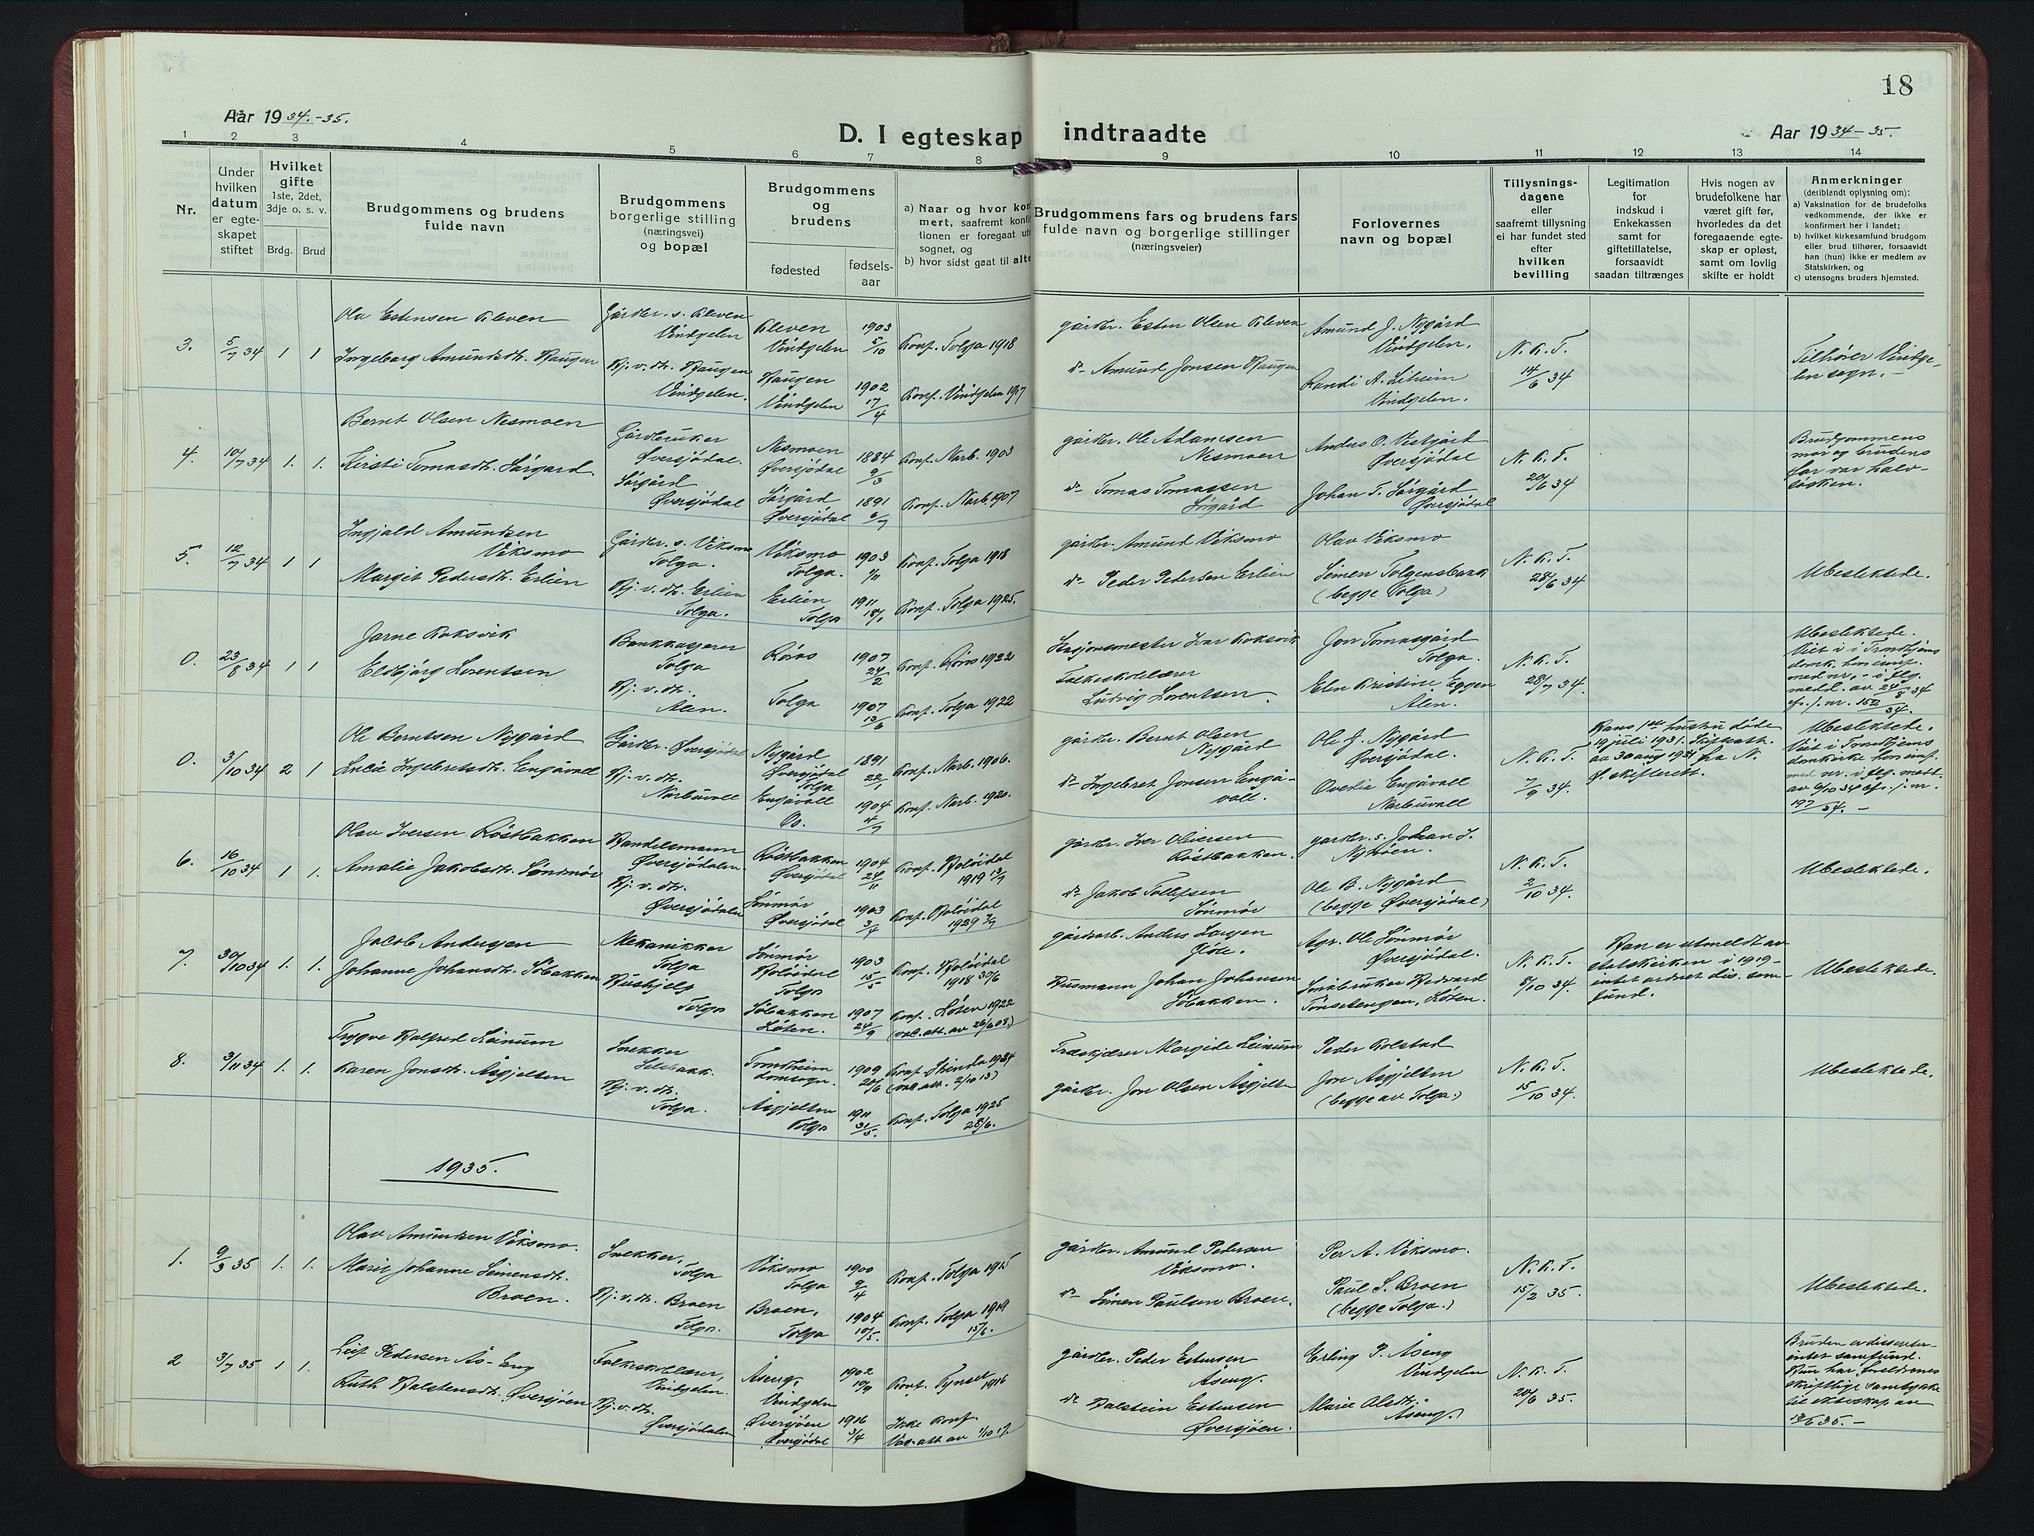 18
Aar 1934.-35.
D. I egteskap indtraadte
Aar 1934-35.
1 2 3 4 5 6 7 8 9 10 11 12 13 14
Nr.
Under hvilken datum er egteskapet stiftet
Hvilket gifte
1ste, 2det, 3dje o. s. v.
Brdg. Brud
Brudgommens og brudens fulde navn
Brudgommens borgerlige stilling
(næringsvei)
og bopæl
Brudgommens og brudens
fødested
fødsels-aar
a) Naar og hvor kon
mert, saafremt konfir
tionen er foregaat ut
sognet, og
b) hvor sidst gaat til alte
Brudgommens fars og brudens fars
fulde navn og borgerlige stillinger
(næringsveier)
Forlovernes
navn og bopæl
Tillysnings-
dagene
eller
saafremt tillysning
ei har fundet sted
efter
hvilken
bevilling
Legitimation
for
indskud i
Enkekassen
samt for
giftetillatelse,
forsaavidt
saadan tiltrænges
Hvis nogen av
brudefolkene har
været gift før,
hvorledes da det
foregaaende egte-
skap er opløst,
samt om lovlig
skifte er holdt
Anmerkninger
(deriblandt oplysning om):
a) Vaksination for de brudefolks
vedkommende, der ikke er
konfirmert her i landet;
b) hvilket kirkesamfund brudgom
eller brud tilhører, forsaavidt
han (hun) ikke er medlem av
Statskirken, og
c) utensogns bruders hjemsted.
3. 5/7 34 1 1
Olav Estensen Kleven
Ingeborg Amundsdtr. Haugen
Gårdbr. s. Kleven
Vindgelen
Hj. v. dtr. Haugen
Vindgelen.
Kleven
Vindgelen
Haugen
Vindgelen
1903
5/10
1902
17/4
Konf. Tolga 1918
Konf. Vindgelen 1917
gårdbr. Esten Olsen Kleven
do Amund Jonsen Haugen
Amund J. Nygård
Vindgelen.
Randi A. Liheim
Vindgelen.
N. K. T.
14/6 34
Tilhører Vindge-
len sogn. -
4. 10/7 34 1. 1.
Bernt Olsen Nesmoen
Kirsti Tomasdtr. Sørgard.
Gårdbruker
Øversjødal.
Sørgård
Øversjødal
Nesmoen
Øversjødal
Sørgård
Øversjødal
1884
9/3
1891
6/7
Konf. Narb. 1903
Konf. Narb. 1907
gårdbr. Ole Adamsen
Nesmoen
do Tomas Tomassen
Sørgård
Anders O. Vestgård
Øversjødal
Johan T. Sørgård
Øversjødal
N. K. T.
20/6 34
Brudgommens
mor og brudens
far var halv-
søsken.
5. 12/7 34 1 1
Ingjald Amundsen
Viksmo
Margit Pedersdtr. Erlien
Gårdbr. s. Viksmo
Tolga.
Hj. v. dtr. Erlien
Tolga.
Viksmo
Tolga.
Erlien
Tolga
1903
1/11
1911
18/1
Konf. Tolga 1918
Konf. Tolga 1925.
gårdbr. Amund Viksmo
do Peder Pedersen Erlien
Olav Viksmo
Simen Tolgensbakk
(begge Tolga)
N. K. T.
28/6 34
Ubeslektede.
0. 23/8 34 1 1
Jarne Koksvik
Eldbjørg Lorentsen
Bankkasserer
Tolga
Hj. v. dtr.
Ålen.
Røros
Tolga
1907
24/2
1907
13/6
Konf. Røros 1922
Konf. Tolga 1922
Stasjonsmester Ivar Koksvik
Folkeskolelærer
Ludvig Lorentsen
Jon Tomasgård
Tolga.
Elen Kristine Eggen
Ålen.
N. K. T.
28/7 34.
Ubeslektede.
Viet i Trondhjems
domk. hos innf.
med nr. - i flg.
medd. av 24/8 34
0. 3/10 34 2 1
Ole Berntsen Nygård
Lucie Ingebretsdtr. Engåvoll
Gårdbr. Øversjødal
Hj. v. dtr.
Narbuvoll
Nygård
Øversjødal
Tolga
Engåvoll
Os.
1891
22/1
1904
4/7
Konf. Narb. 1906.
Konf. Narb. 1920.
gårdbr. Bernt Olsen
Nygård
do Ingebret Jonsen Engå-
voll.
Ole J. Nygård
Øversjødal.
Ovedia Engåvoll
Narbuvoll
N. K. T.
7/9 34.
Hans 1ste hustru døde
19 juli 1931. Skifteatt.
av 30 aug 1934 fra N.
Ø. skifterett.
Ubeslektede.
Viet i Trondhjems
domkirke hos innf.
med nr. i flg. medd.
6. 16/10 34 1 1.
Olav Iversen Røstbakken
Amalie Jakobsdtr. Sønmør
Handelsmann
Øversjødalen.
Hj. v. dtr.
Øversjødalen
Røstbakken
Øversjødal
Sønmør
Øversjødal
1904
24/11
1903
3/4
Konf. Holøidal
1919 13/7
Konf. Holøidal
gårdbr. Iver Olivesen
Røstbakken.
do Jakob Tollefsen
Sønmør
gardbr. s. Johan I.
Nyhøen.
Ole B. Nygård
(begge Øversjødal)
N. K. T.
2/10 34.
Ubeslektede.
7. 30/10 34 1. 1.
Jacob Andersen
Johanne Johansdtr. Søbakken
Mekanikker
Tolga
Hushjelp
Tolga
Sønmør
Holøidal
Tolga
Søbakken
Løten.
1903
15/5
1907
24/9
Konf. Holøidal
1918 30/6
Konf. Løten 1922
(vac. att. av 26/6 08.)
gårdarb. Anders Larsen
Husmann Johan Johansen
Søbakken.
Agr. Ole Sønmør
Øversjødal.
Småbruker Hedvard
Tønsetengen, Løten.
N. K. T.
8/10 34.
Han er utmeldt av
statskirken i 1919-
intet ordnet dis. sam-
fund.
Ubeslektede.
8. 3/11 34 1. 1.
Trygve Halfred Leinum
Karen Jonsdtr. Åsgjelten
Snekker
Selsbakk.
Hj. v. dtr.
Tolga.
Trondheim
domsogn.
Åsgjelten
Tolga
1909
20/6
1911
31/5.
Konf. Strinda 1924
(vac. att. 2/10 13)
Konf. Tolga 1925
28/6.
Træskjærer Margido Leinum
gårdbr. Jon Olsen Åsgjelten
Peder Kolstad
Jon Åsgjelten
(begge av Tolga.)
N. K. T.
15/10 34.
Ubeslektede.
1935.
1. 9/3 35 1. 1.
Olav Amundsen Viksmo.
Marie Johanne Simensdtr.
Broen.
Snekker,
Tolga
Hj. v. dtr. Broen
Tolga.
Viksmo
Tolga
Broen,
Tolga
1900
9/4
1904
10/5.
Konf. Tolga 1915
Konf. Tolga 1919
15/6.
gårdbr. Amund Pedersen
Viksmo.
do Simen Paulsen Broen.
Per A. Viksmo.
Paul S. Broen
(begge Tolga.)
N. K. T.
15/2 35.
Ubeslektede.
2 3/7 35 1 1.
Leif Pedersen Ås-Eng
Ruth Halstensdtr. Øversjøen
Folkeskolelærer,
Vindgelen.
Hj. v. dtr.
Øversjødalen
Åseng,
Vindgelen
Øversjøen
Øversjødal
1902
10/9
1916
3/4
Konf. Tynset
1916
Ikke konf.
Vac. att av 1/10 17.
gårdbr. Peder Estensen
Åseng.
do Halstein Estensen
Øversjøen.
Erling P. Åseng
Vindgelen
Marie Olsdtr.
Åseng.
N. K. T.
20/6 35.
Bruden er dissenter
intet samfund.
Hun har foreldrenes
skriftlige samtykke
til ekteskap av
18/6 35. -